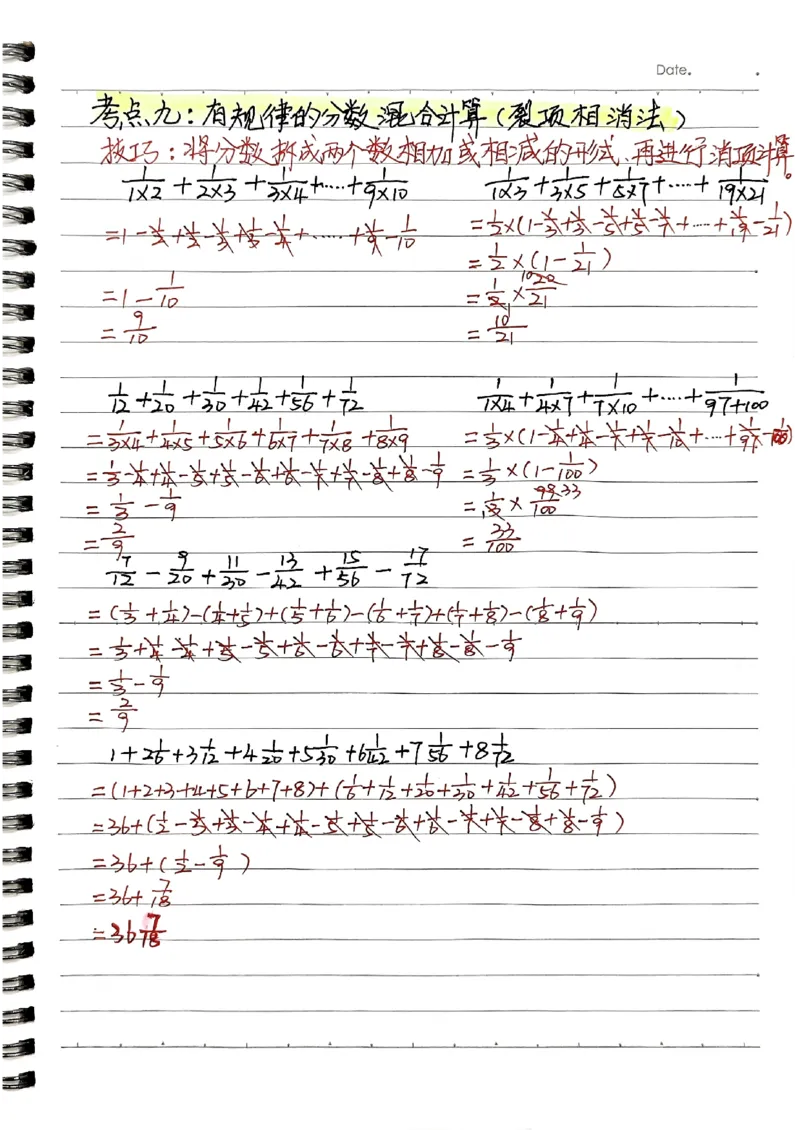 Date.
考点九：有规律的分数混合计算（裂项相消法）
技巧：将分数拆成两个数相加或相减的形式、再进行消项计算。
1/1×2 + 1/2×3 + 1/3×4 +……+ 1/9×10
=1-1/2+1/2-1/3+1/3-1/4+……+1/9-1/10
=1-1/10
=9/10
1/1×3 + 1/3×5 + 1/5×7 +……+ 1/19×21
=1/2×(1-1/3+1/3-1/5+1/5-1/7+……+1/19-1/21)
=1/2×(1-1/21)
=1/2×20/21
=10/21
1/12+1/20+1/30+1/42+1/56+1/72
=1/3×4+1/4×5+1/5×6+1/6×7+1/7×8+1/8×9
=1/3-1/4+1/4-1/5+1/5-1/6+1/6-1/7+1/7-1/8+1/8-1/9
=1/3-1/9
=2/9
1/1×4+1/4×7+1/7×10+……+1/97+100
=1/3×(1-1/4+1/4-1/7+1/7-1/10+…+1/97-1/100)
=1/3×(1-1/100)
=1/3×99/100
=33/100
7/12-9/20+11/30-13/42+15/56-17/72
=(1/3+1/4)-(1/4+1/5)+(1/5+1/6)-(1/6+1/7)+(1/7+1/8)-(1/8+1/9)
=1/3+1/4-1/4+1/5-1/5+1/6-1/6+1/7-1/7+1/8-1/8-1/9
=1/3-1/9
=2/9
1+2 1/6+3 1/12+4 1/20+5 1/30+6 1/42+7 1/56+8 1/72
=(1+2+3+4+5+6+7+8)+(1/6+1/12+1/20+1/30+1/42+1/56+1/72)
=36+(1/2-1/3+1/3-1/4+1/4-1/5+1/5-1/6+1/6-1/7+1/7-1/8+1/8-1/9)
=36+(1/2-1/9)
=36+7/18
=36 7/18